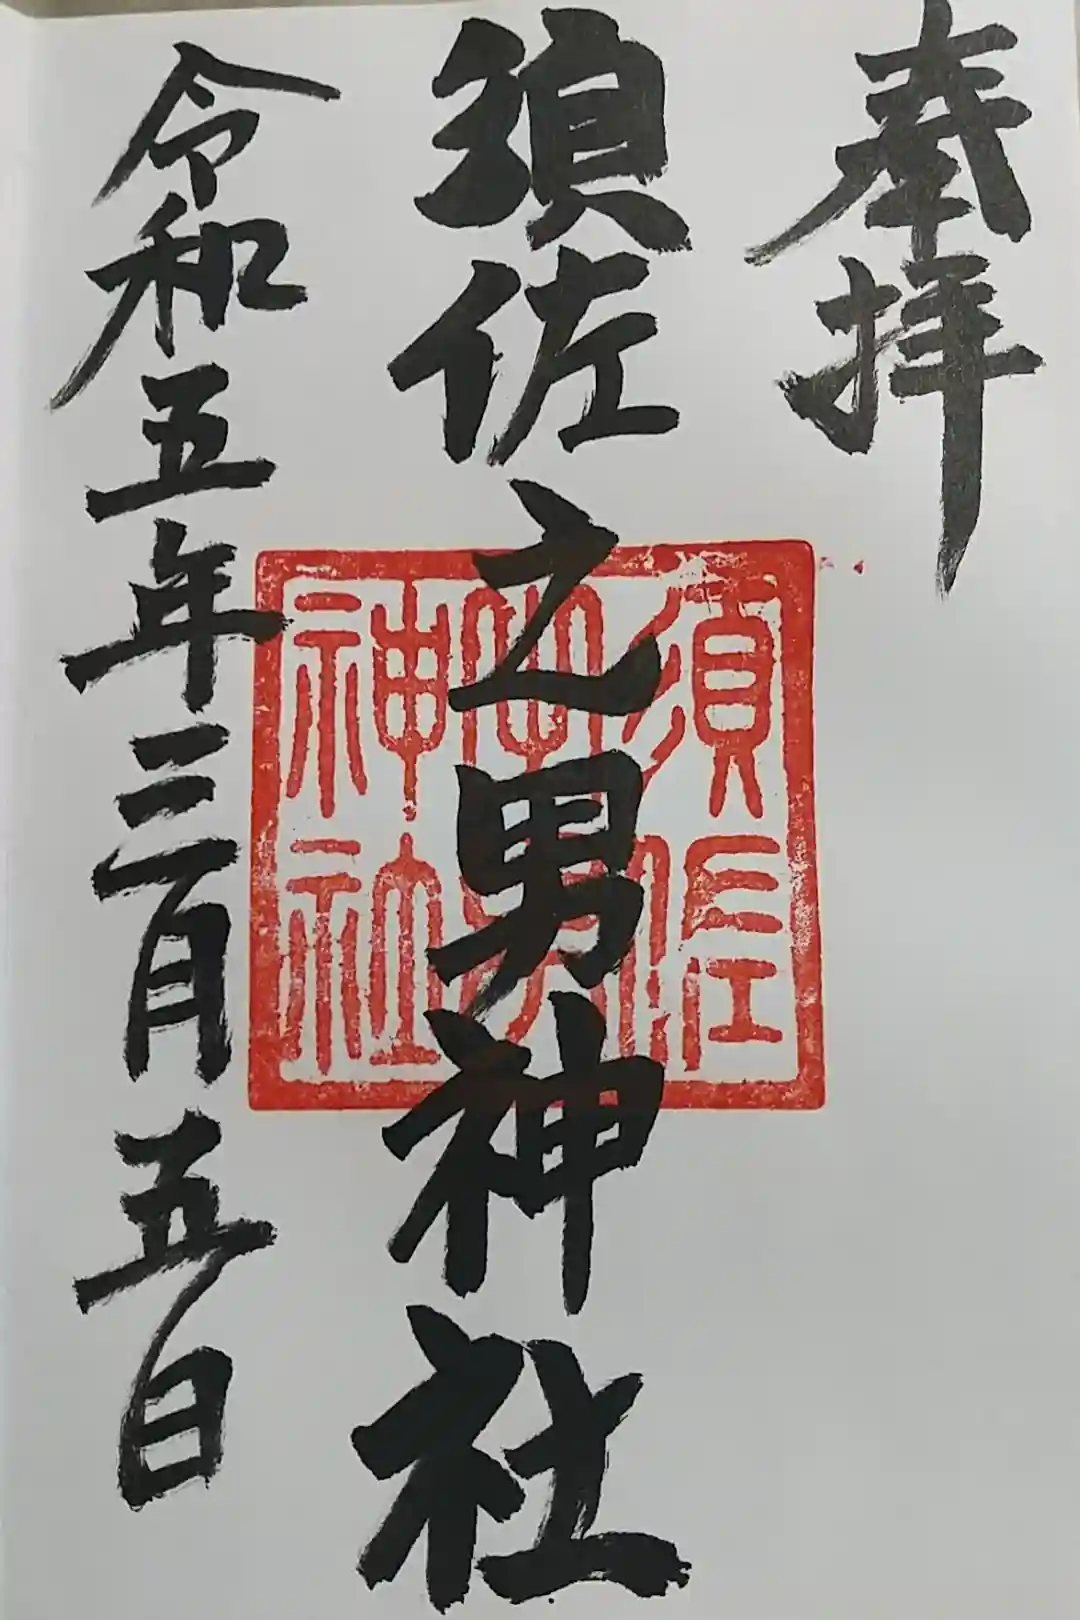 奉拝
須佐之男神社
須佐之男神社
令和五年三月五日